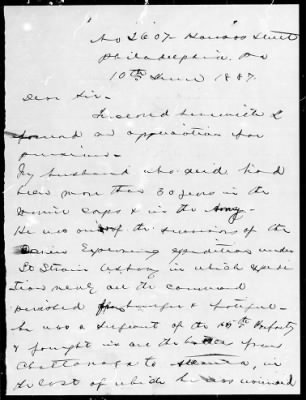 No 2607
Philadelphia, Pa
10th June 1887.
Dear Sir.
Inclosed herewith I
found an application for
pension.
My husband who
more than 30 years in the
Marine Corps & in the Army.
He was one of the survivors of the
Darien Exploring expedition under
Lt Strain in which expedi
tion nearly all the command
perished from hunger & fatigue
he was a Sergeant of the 15th Infantry
& fought in all the battles from
Chattanooga to Atlanta, in
the last of which he was wounded